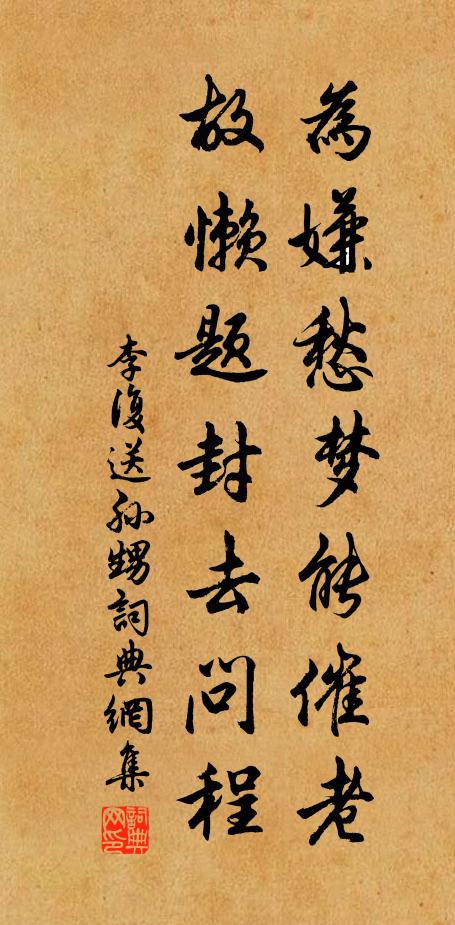 為嫌愁梦能催老
故懒题封去问程
李復送孙甥詞典網集
詞典网印